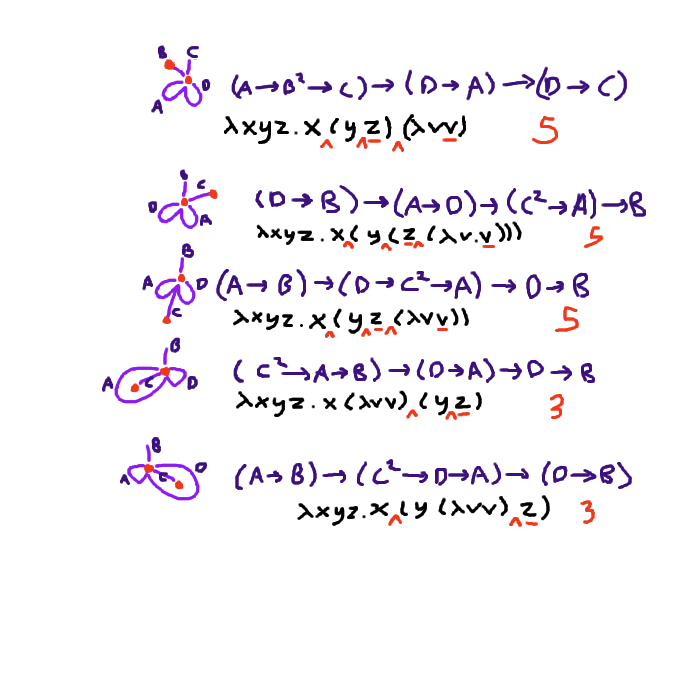 B C
A D
(A→B²→C)→(D→A)→(D→C)
λxyz.x(yz)(λvv) 5
C
D A
(D→B)→(A→D)→(C²→A)→B
λxyz.x(y(z(λv.v))) 5
B
A D
C
(A→B)→(D→C²→A)→D→B
λxyz.x(yz(λvv)) 5
B
A C D
(C²→A→B)→(D→A)→D→B
λxyz.x(λvv)(yz) 3
B
A C D
(A→B)→(C²→D→A)→(D→B)
λxyz.x(y(λvv)z) 3